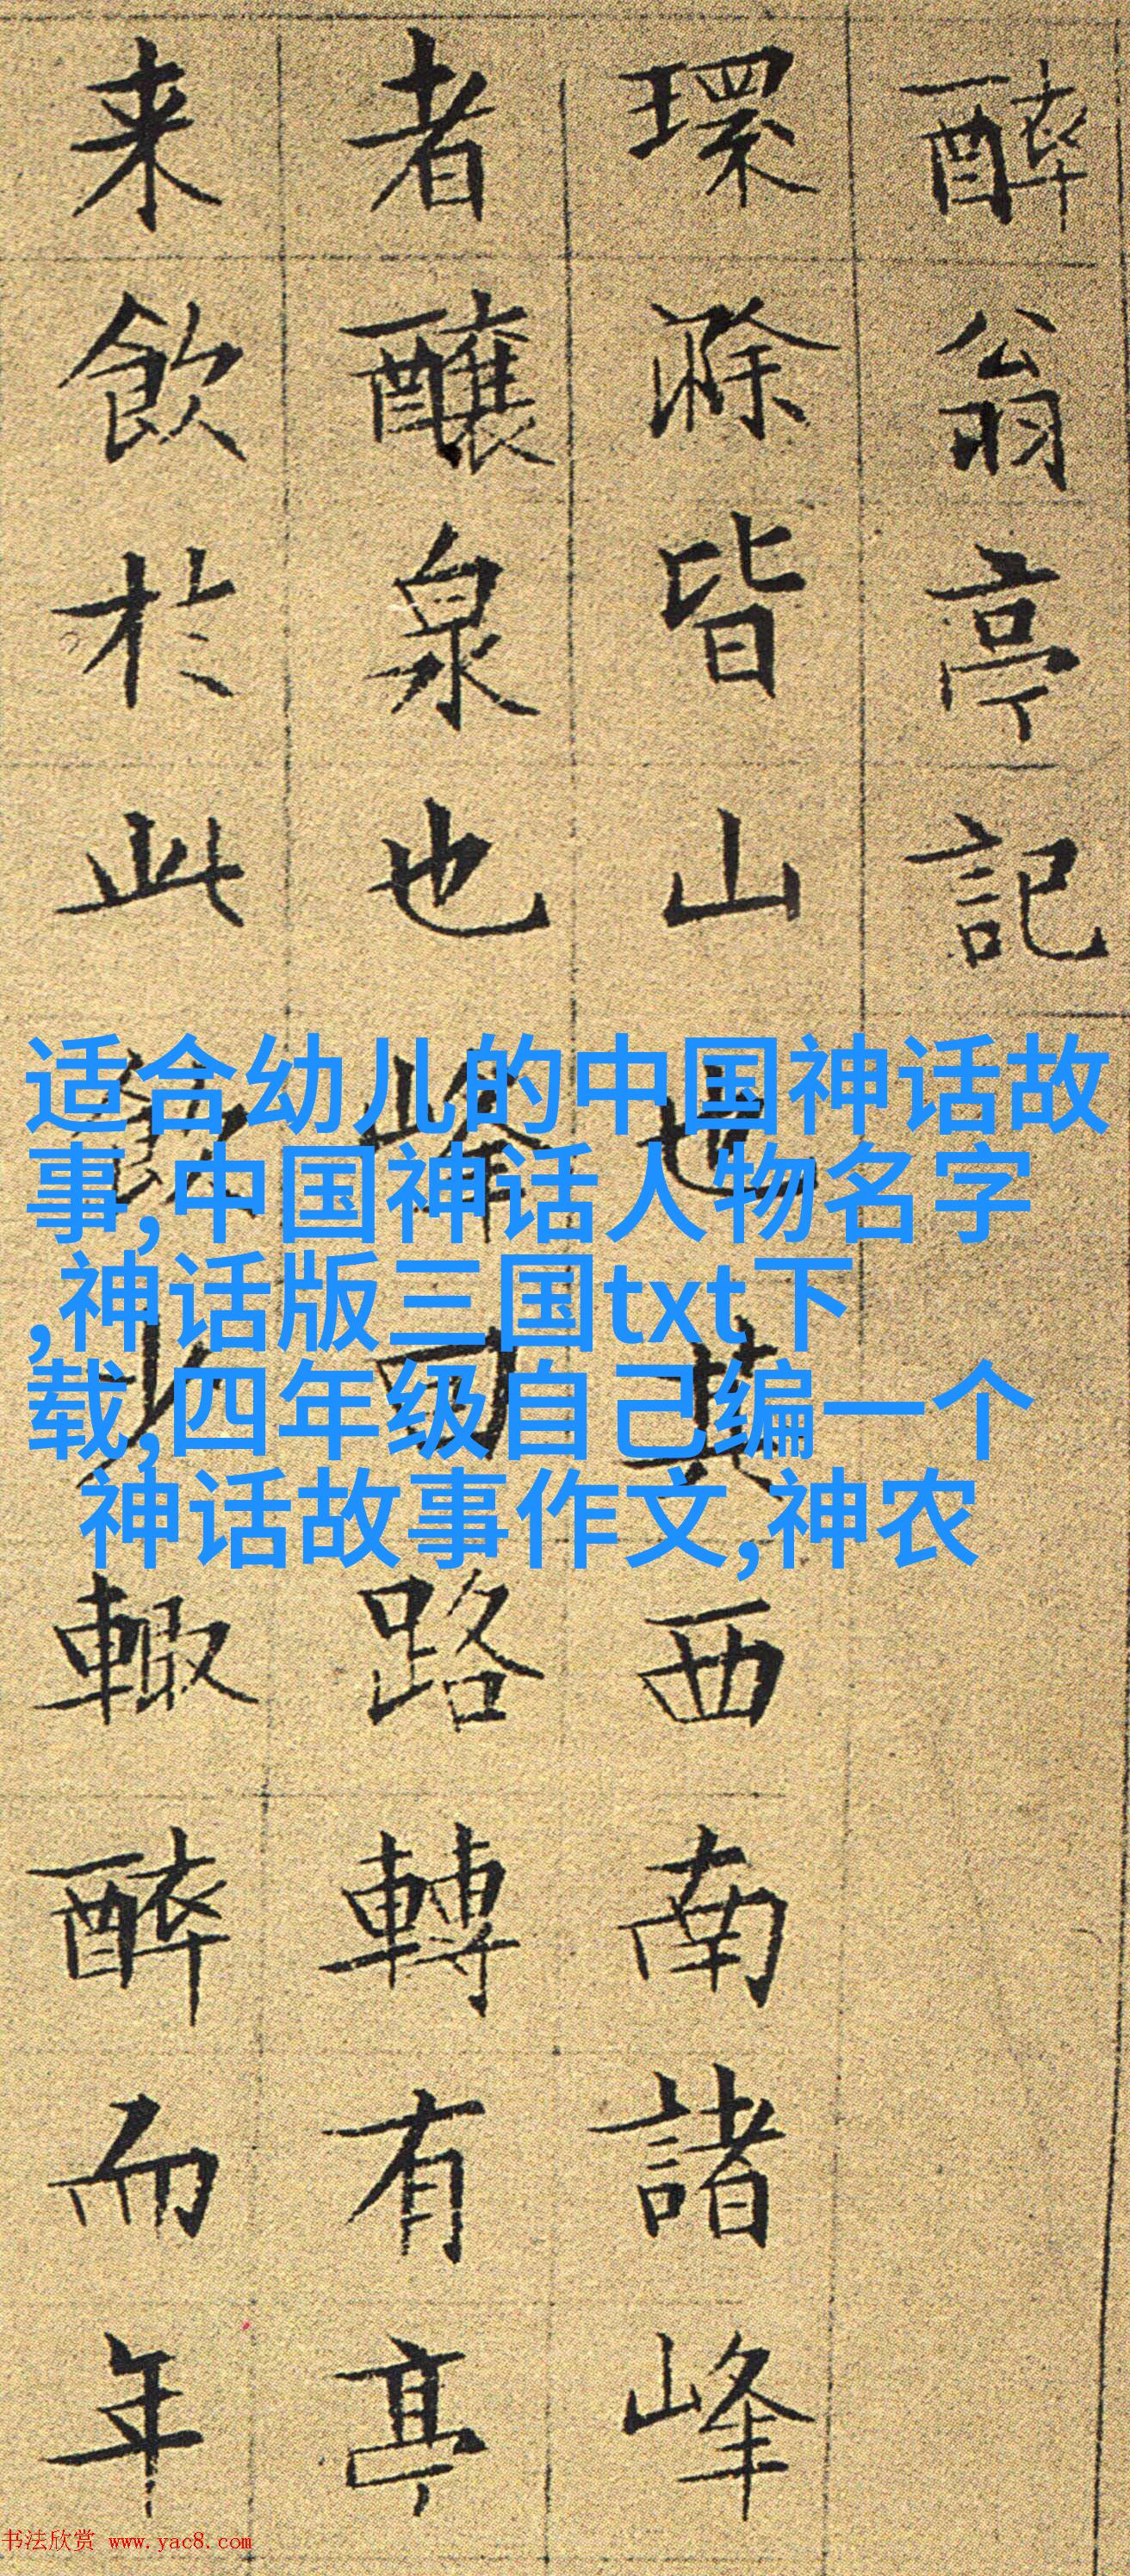 醉翁亭記
環滁皆山也其西南諸峰
者釀泉也峰回路轉有亭
来飲於此飲少輒醉而年
适合幼儿的中国神话故
事,中国神话人物名字
,神话版三国txt下
载,四年级自己编一个
神话故事作文,神农
书法欣赏 www.yac8.com